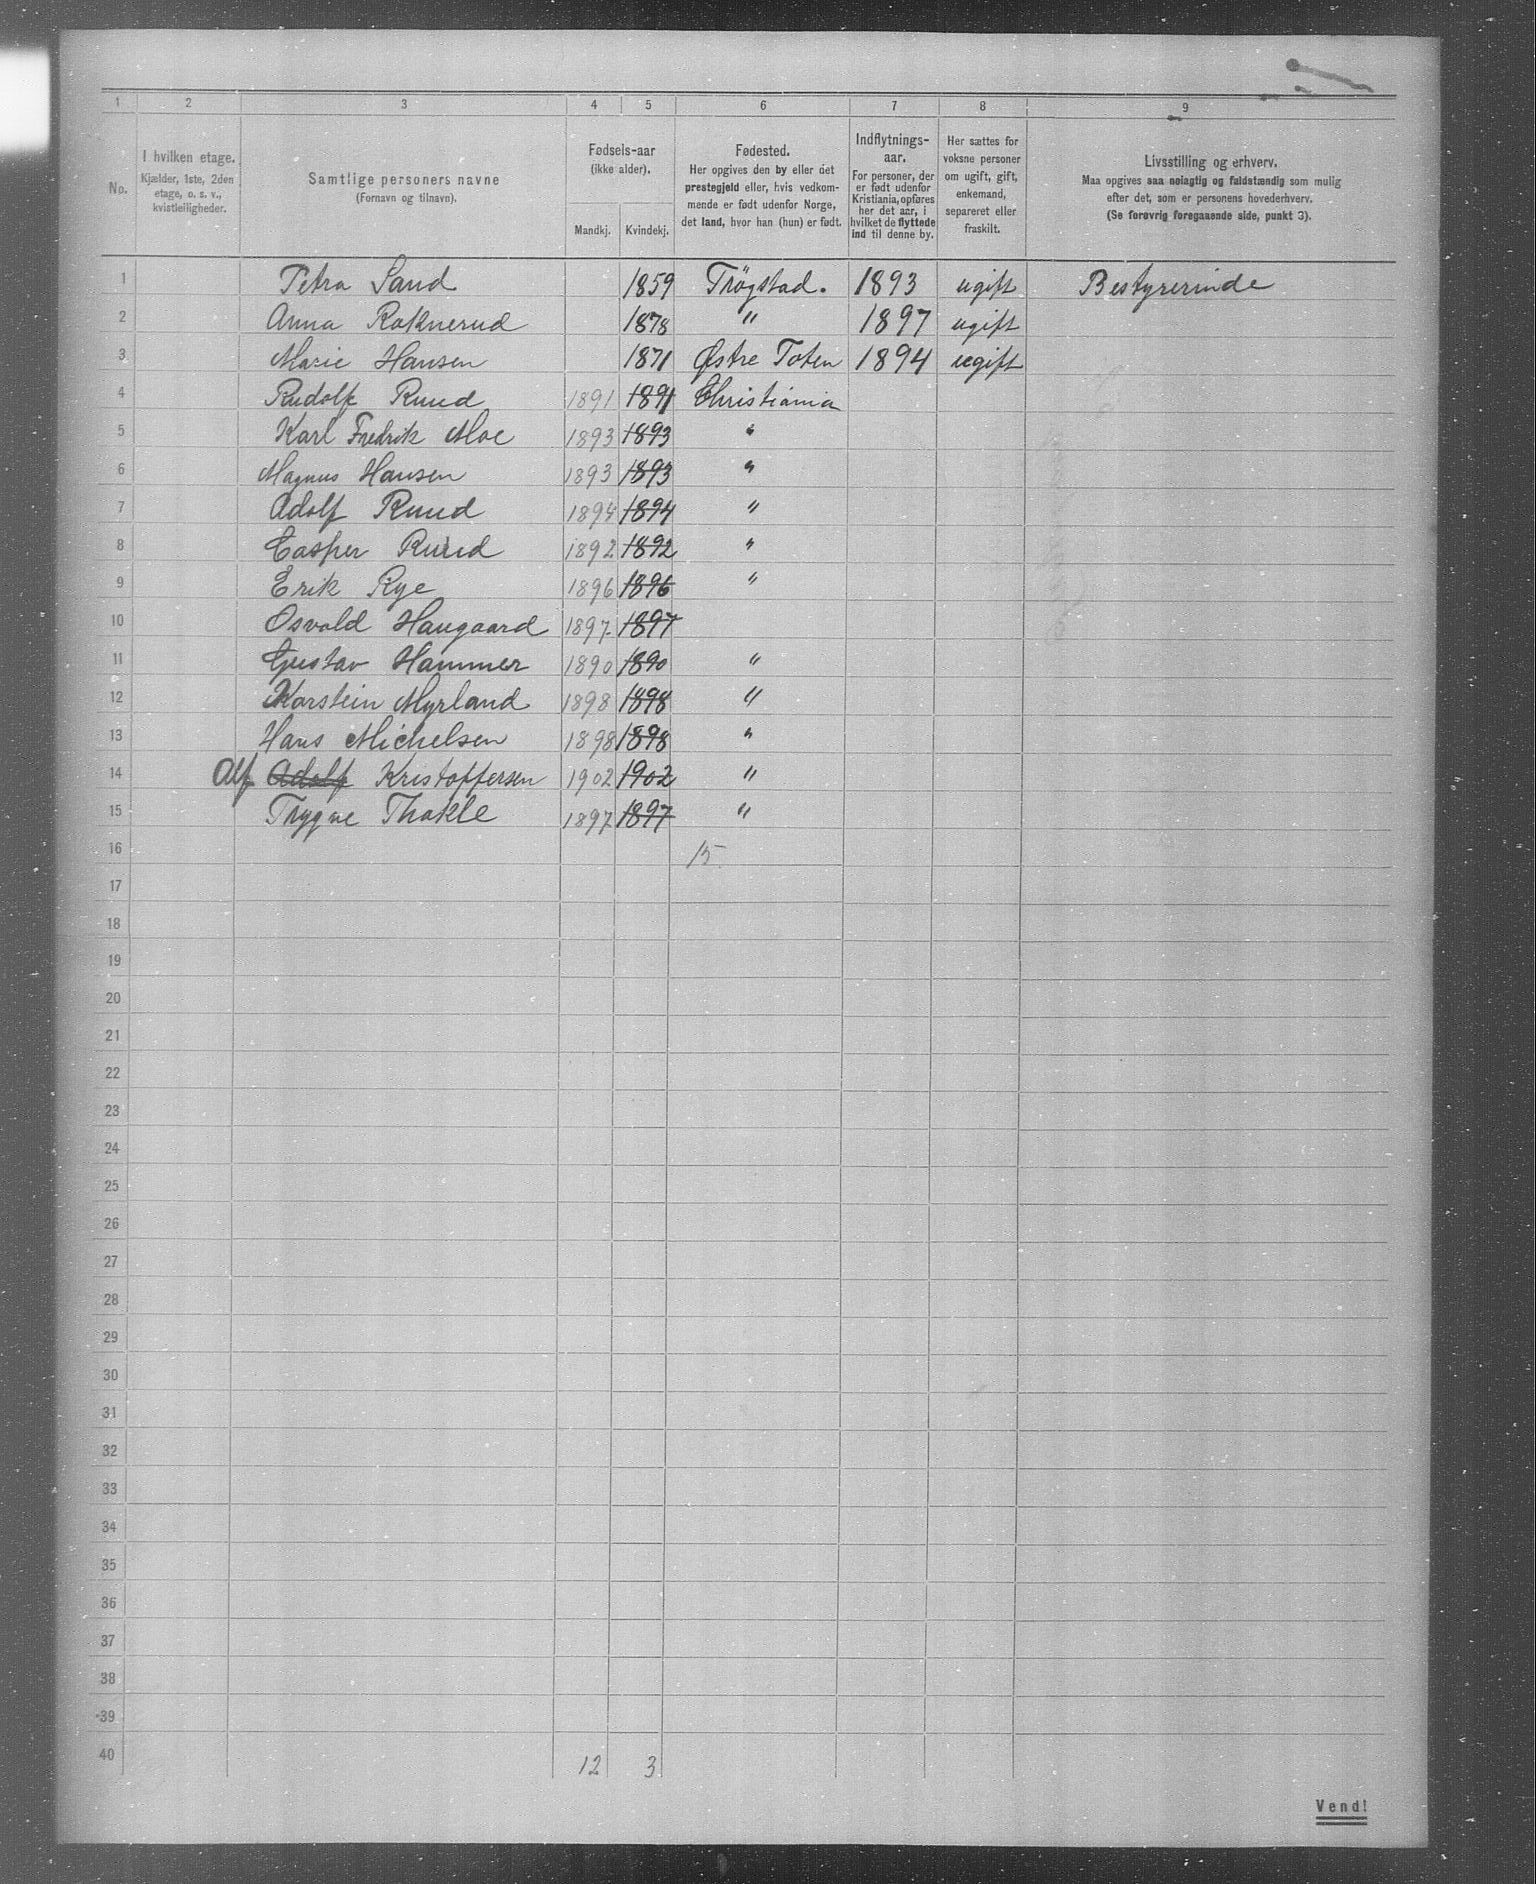 1 2 3 4 5 6 7 8 9
No.
I hvilken etage.
Kjælder, 1ste, 2den
etage, o. s. v.,
kvistleiligheder.
Samtlige personers navne
(Fornavn og tilnavn).
Fødsels-aar
(ikke alder).
Mandkj. Kvindekj.
Fødested.
Her opgives den by eller det
prestegjeld eller, hvis vedkom-
mende er født udenfor Norge,
det land, hvor han (hun) er født.
Indflytnings-
aar.
For personer, der
er født udenfor
Kristiania, opføres
her det aar, i
hvilket de flyttede
ind til denne by.
Her sættes for
voksne personer
om ugift, gift,
enkemand,
separeret eller
fraskilt.
Livsstilling og erhverv.
Maa opgives saa nøiagtig og fuldstændig som mulig
efter det, som er personens hovederhverv.
(Se forøvrig foregaaende side, punkt 3).
1 Petra Sand 1859 Trøgstad. 1893 ugift Bestyrerinde
2 Anna Raknerud 1878 " 1897 ugift
3 Marie Hansen 1871 Østre Toten 1894 ugift
4 Rudolf Ruud 1891 1891 Christiania
5 Karl Fredrik Moe 1893 1893 "
6 Magnus Hansen 1893 1893 "
7 Adolf Ruud 1894 1894 "
8 Casper Ruud 1892 1892 "
9 Erik Rye 1896 1896 "
10 Osvald Haugaard 1897 1897
11 Gustav Hammer 1890 1890 "
12 Karstein Myrland 1898 1898 "
13 Hans Michelsen 1898 1898 "
14 Alf Adolf Kristoffersen 1902 1902 "
15 Trygve Thokle 1897 1897 "
16 15.
17
18
19
20
21
22
23
24
25
26
27
28
29
30
31
32
33
34
35
36
37
38
39
40 12 3
Vend!